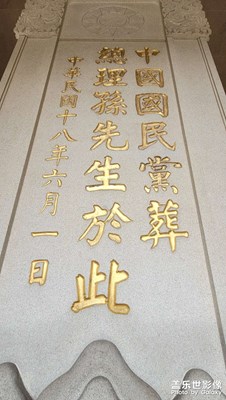 中國國民黨葬
總理孫先生於此
中華民國十八年六月一日
盖乐世影像
Photo by Galaxy